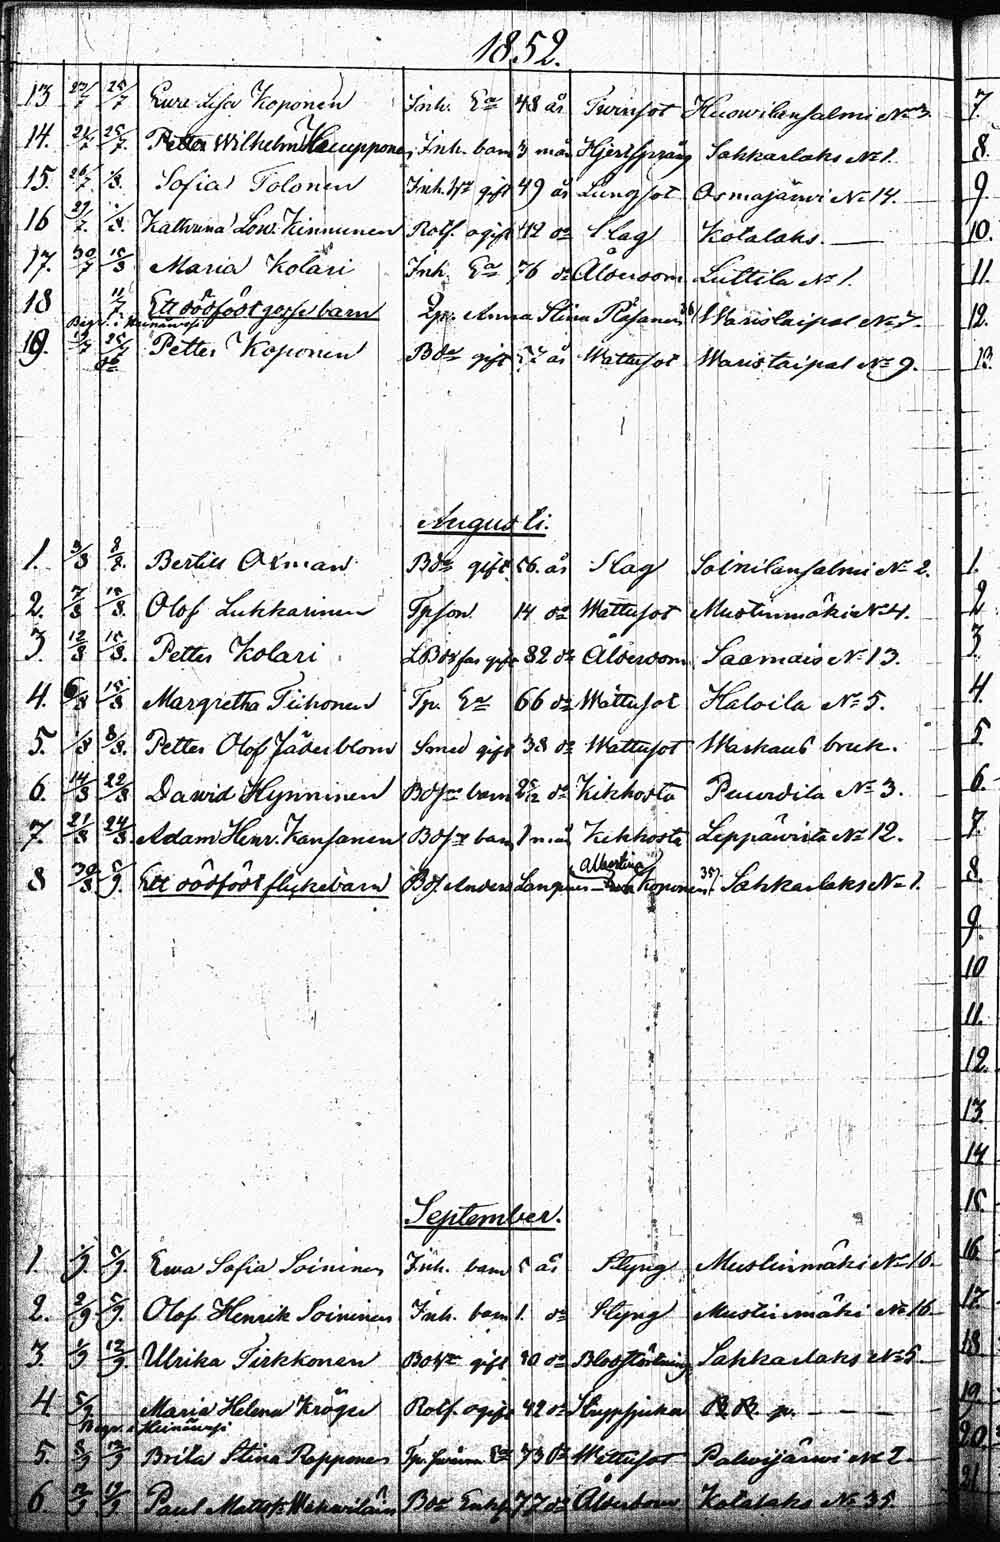 1852.
13 27/7 25/7 Ewa Lisa Koponen Inh. E:a 48 år Twinsot Huowilansalmi No 3.
14. 21/7 25/7. Petter Wilhelm Kaupponen Inh. barn 3 mån Hjertsprång Sahkarlaks No 1.
15. 26/7 1/8. Sofia Tolonen Inh. h:u gift 49 år Lungsot Osmajärwi No 14.
16 27/7. 1/8. Kathrina Lov. Kinnunen Rotf. ogift 42 do Slag Kotalaks.
17. 30/7 15/8 Maria Kolari Inh. E:a 76 do Ålderdom Luttila No 1.
18 11/7 Ett dödfödt gosse barn Anna Stina Räsänen 36 Waristaipal No 7.
Begr. i Heinäwesi
19. 25/7 Petter Koponen Bd:n gift 57 år Wattusot Waristaipal No 9.
do
Augusti.
1. 3/8 8/8. Bertill Oxman Bd:n gift. 56. år Slag Soinilansalmi No 2.
2. 7/8 15/8. Olof Lukkarinen Tpson 14 do Wattusot Mustinmäki No 4.
3. 12/8 15/8. Petter Kolari gift 82 do Ålderdom Saamais No 13.
4. 6/8 15/8 Margretha Tiihonen Tp. E:a 66 do Wattusot Haloila No 5.
5. 1/8 8/8. Petter Olof Jäderblom Smed gift 38 do Wattusot Warkaus bruk.
6. 14/8 22/8 Dawid Hynninen barn do Kikhosta No 3.
7. 21/8 24/8 Adam Henr. Kansanen barn 1 mån Kikhosta Leppäwirta No 12.
Albertina
8 30/8 5/9. Ett dödfödt flickebarn Anders Koponen 35 Sahkarlaks No 1.
September.
1. 1/9. 5/9. Ewa Sofia Soininen Inh. barn 5 år Styng Mustinmäki No 16.
2. 2/9 5/9. Olof Henrik Soininen Inh. barn 1. do Styng Mustinmäki No 16
3. 1/9 12/9. Ulrika Tirkkonen gift 30 do Blodstörtning Sahkarlaks No 5
4. 5/9 Maria Helena Kröger Rotf. ogift 42 do
Begr. i Heinäwesi
5. 8/9 12/9 Brita Stina Ropponen Tp. 73 do Wattusot Palwijärwi No 2
6 12/9. 19/9. Paul Matts. Bd:n Enkl. 77 do Ålderdom Kotalaks No 35
7.
8.
9
10.
11.
12.
13.
1.
2
3.
4.
5.
6.
7.
8.
9.
10
11.
12.
13.
14
15.
16
17.
18
19
20.
21